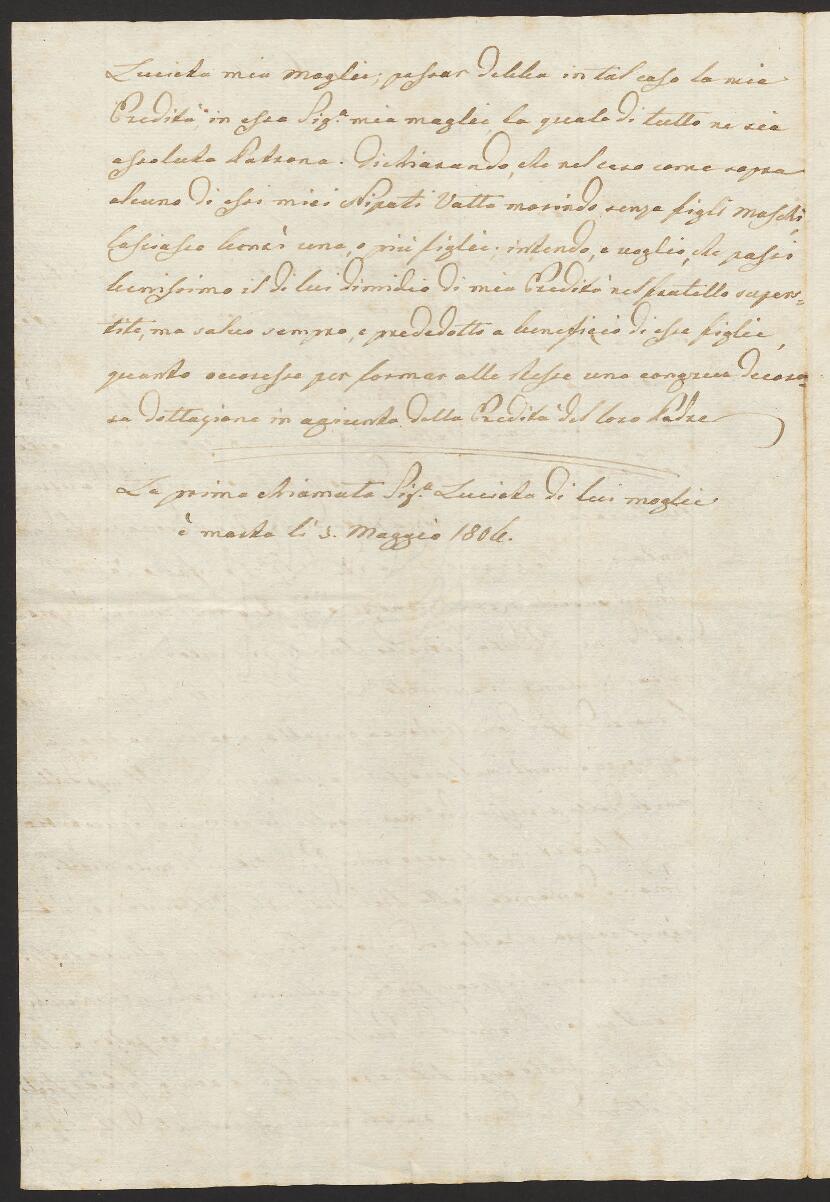 Lucieta mia moglie; passar debba in tal caso la mia
Eredità in essa Sig.ª mia moglie, la quale di tutto ne sia
assoluta Patrona. Dichiarando, che nel caso come sopra
alcuno di essi miei Nipoti Vatta morindo senza figli maschi,
lasciasse bensì una, o più figlie; intendo, e voglio, che passi
benissimo il di lui dimidio di mia Eredità nel fratello supers=
tite, ma salvo sempre, e prededotto a beneficio di esse figlie,
quanto occoresse per formar alle stesse una congrua decoro=
sa dottazione in agiunta della Eredità del loro Padre
La prima chiamata Sig.ª Lucieta di lui moglie
è morta li 3. Maggio 1806.